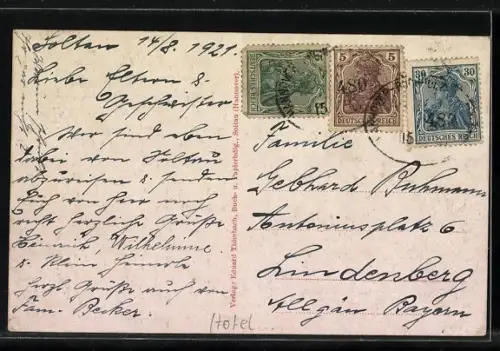 Soltau 14/8. 1921.
Liebe Eltern &
Geschwister
Wir sind eben
dabei von Soltau
abzureisen & senden
Euch von hier noch
recht herzliche Grüße
Heinrik, Wilhelmine
& klein Heinerle
herzl. Grüße auch von
Fam. Becker.
Verlag: Eduard Thömbach, Buch- u. Papierhdlg., Soltau (Hannover).
5 5
DEUTSCHES REICH
30 30
DEUTSCHES REICH
Familie
Gebhard Buhmann
Antoniusplatz 6
Lindenberg
Allgäu Bayern
Hotel